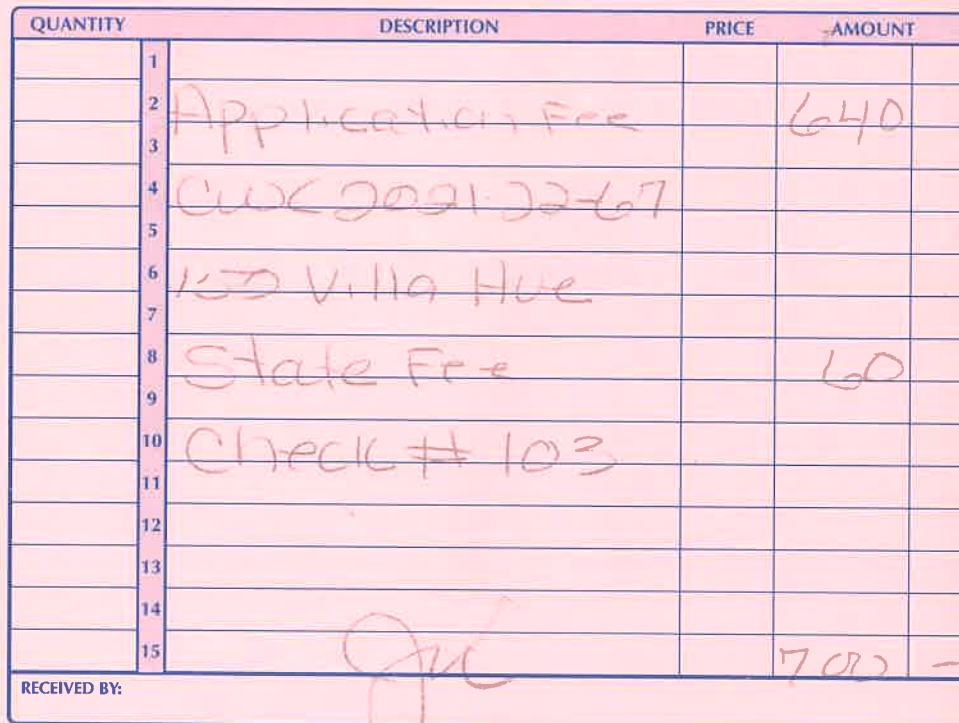 QUANTITY DESCRIPTION PRICE AMOUNT
1
2 Application Fee 640
3
4 CWC 2021-22-67
5
6 Villa Ave
7
8 State Fee 60
9
10 Check # 103
11
12
13
14
15 700 -
RECEIVED BY: